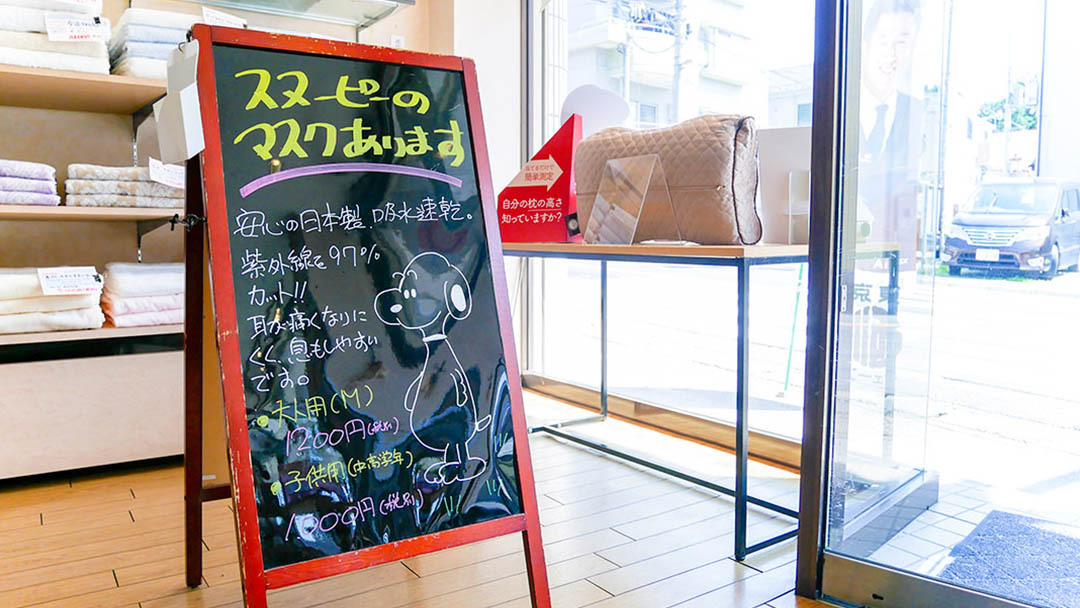 スヌーピーの
マスクあります
安心の日本製。吸水速乾。
紫外線を97%
カット!!
耳が痛くなりに
くく、息もしやすい
です。
大人用(M)
1200円(税別)
子供用(中高学年)
1000円(税別)
簡単測定
自分の枕の高さ
知っていますか?